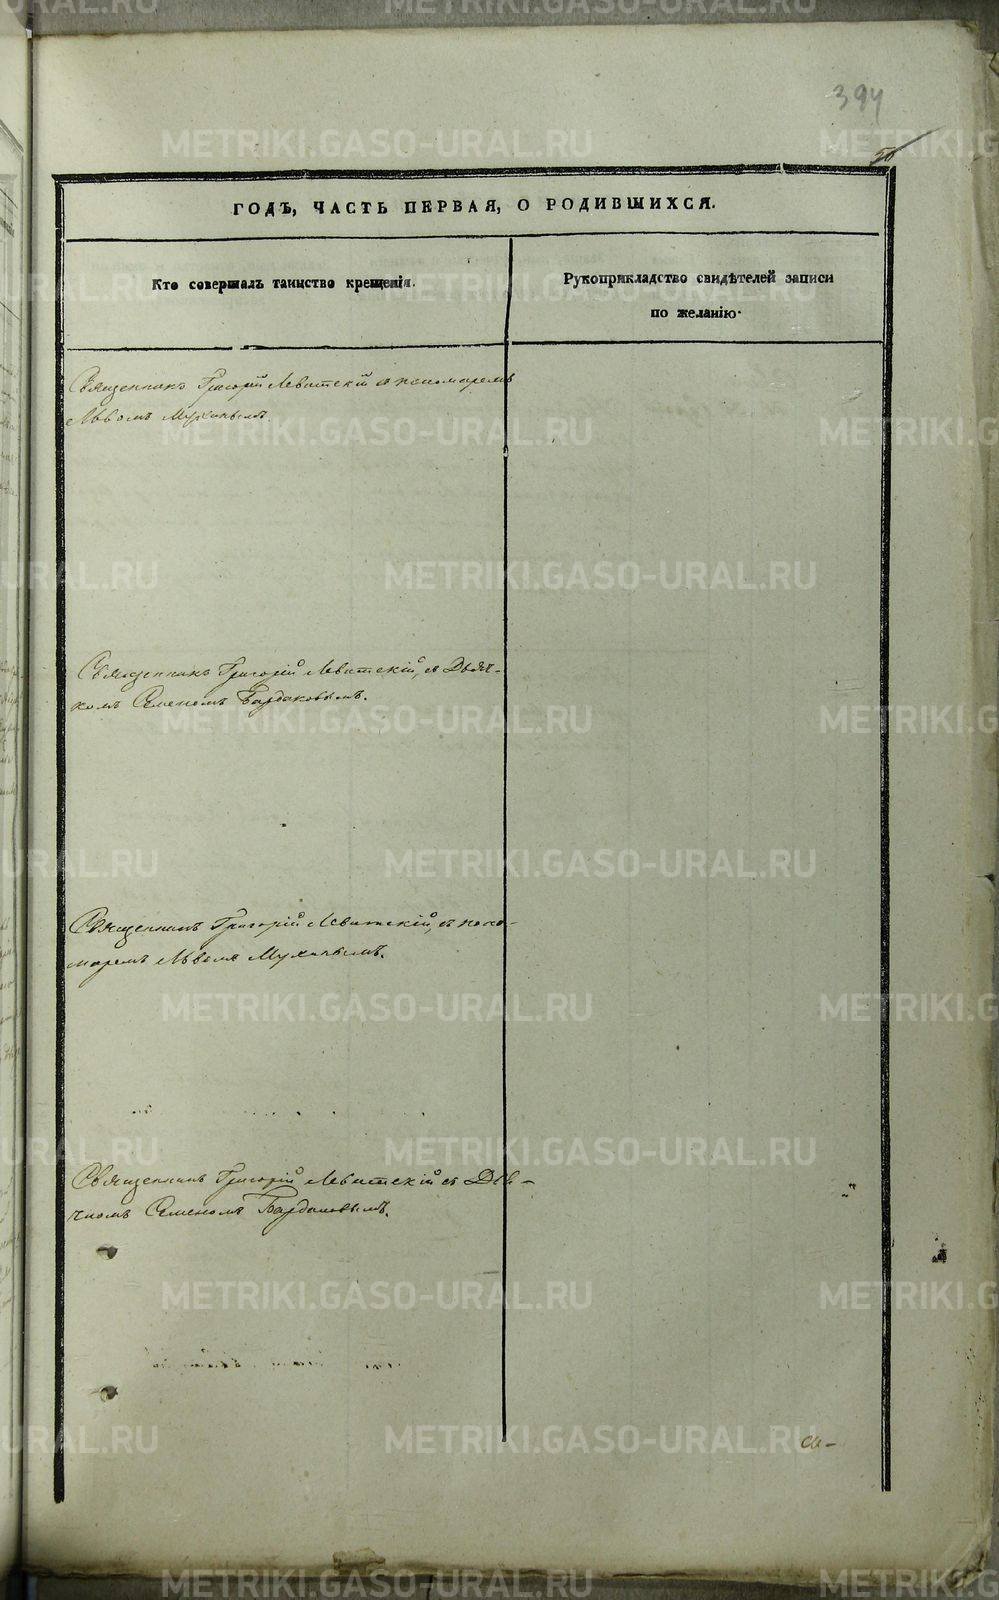 394
50
ГОДЪ, ЧАСТЬ ПЕРВАЯ, О РОДИВШИХСЯ.
Кто совершалъ таинство крещенія.
Рукоприкладство свидѣтелей записи
по желанію.
Священникъ Григорій Левитскій съ пономаремъ
Львомъ Мухинымъ.
Священникъ Григорій Левитскій, съ Дьяч-
комъ Семеномъ Бардаковымъ.
Священникъ Григорій Левитскій, съ поно-
маремъ Львомъ Мухинымъ.
Священникъ Григорій Левитскій съ Дья-
чкомъ Семеномъ Бардаковымъ.
METRIKI.GASO-URAL.RU